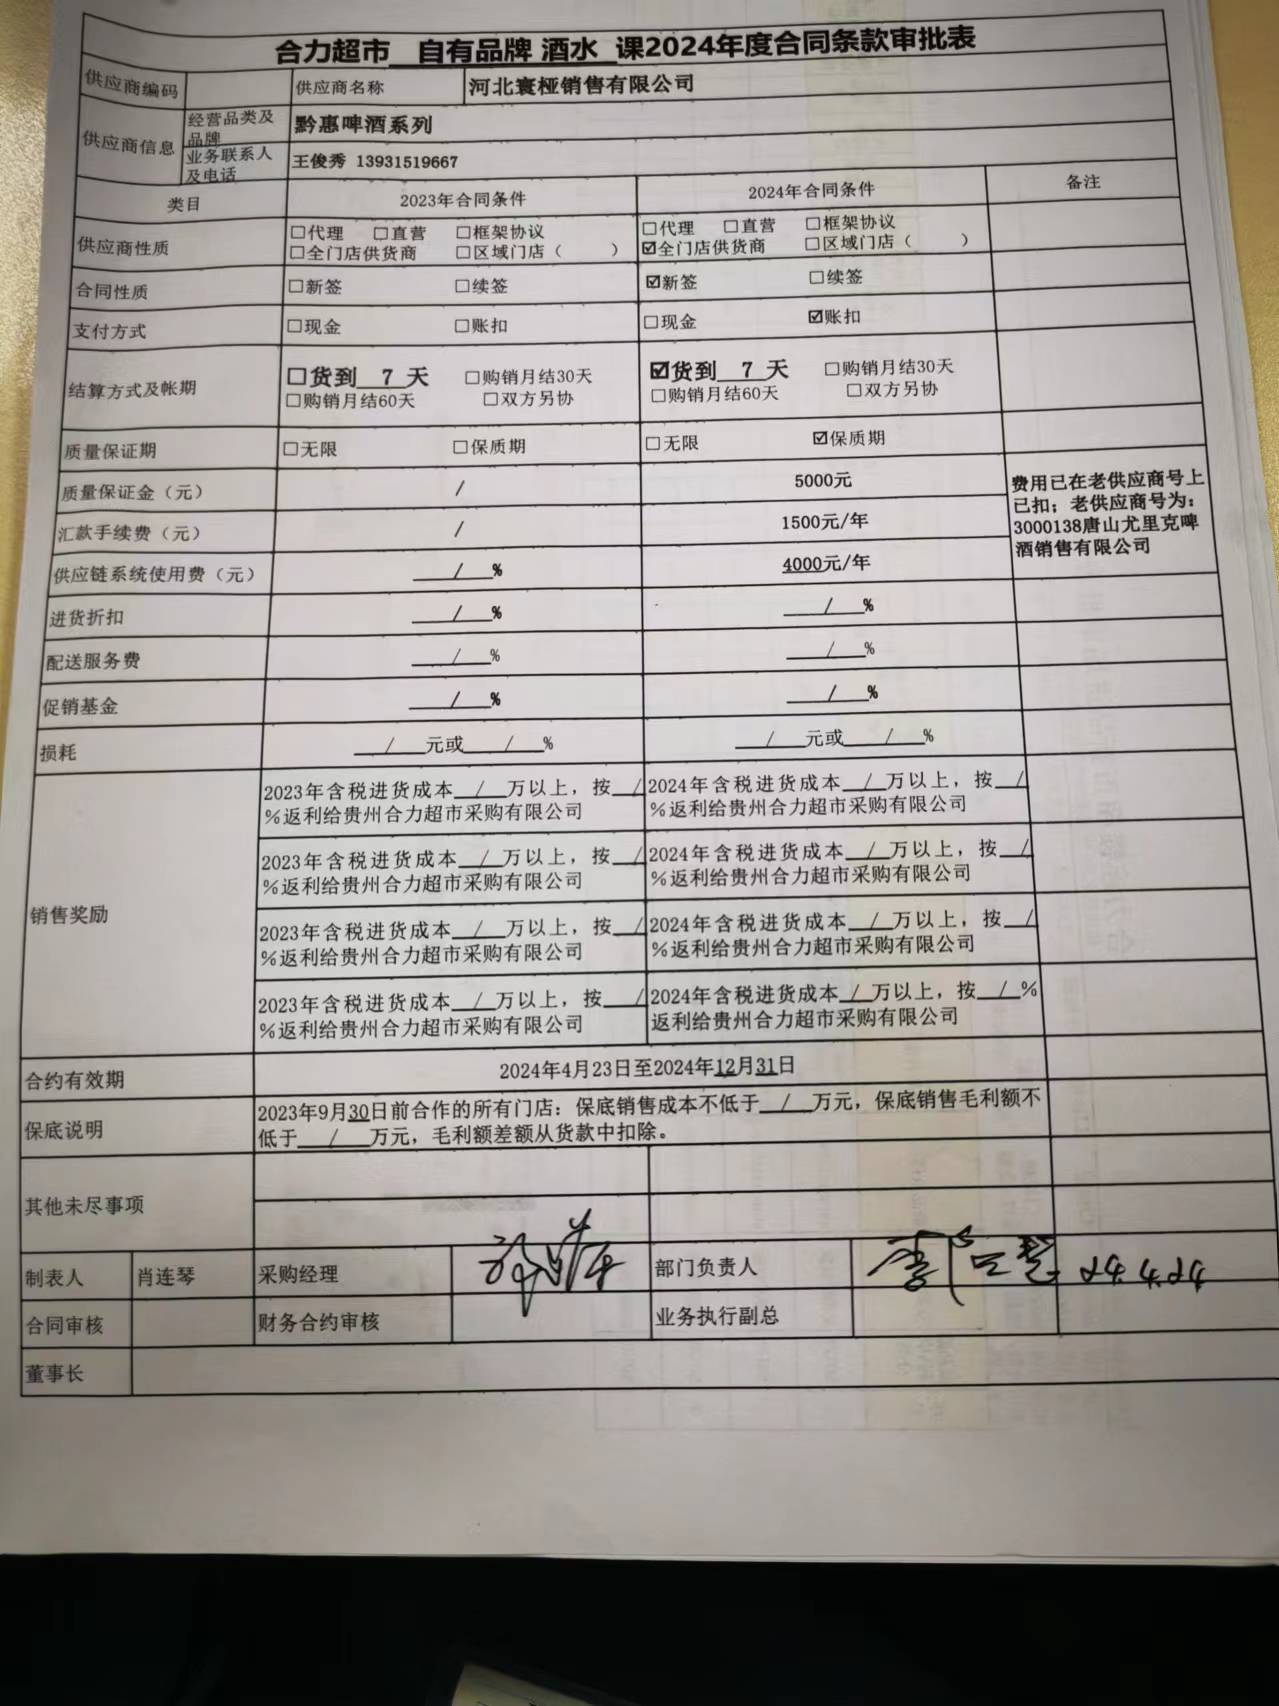 合力超市 自有品牌 酒水 课2024年度合同条款审批表
供应商编码 供应商名称 河北寰桠销售有限公司
供应商信息 经营品类及品牌 黔惠啤酒系列
业务联系人及电话 王俊秀 13931519667
类目 2023年合同条件 2024年合同条件 备注
供应商性质 □代理 □直营 □框架协议 □代理 □直营 □框架协议
□全门店供货商 □区域门店（ ） ☑全门店供货商 □区域门店（ ）
合同性质 □新签 □续签 ☑新签 □续签
支付方式 □现金 □账扣 □现金 ☑账扣
结算方式及帐期 □货到 7 天 □购销月结30天 ☑货到 7 天 □购销月结30天
□购销月结60天 □双方另协 □购销月结60天 □双方另协
质量保证期 □无限 □保质期 □无限 ☑保质期
质量保证金（元） / 5000元
汇款手续费（元） / 1500元/年
供应链系统使用费（元） / % 4000元/年
费用已在老供应商号上
已扣；老供应商号为：
3000138唐山尤里克啤
酒销售有限公司
进货折扣 / % / %
配送服务费 / % / %
促销基金 / % / %
损耗 / 元或 / % / 元或 / %
销售奖励
2023年含税进货成本 / 万以上，按 / 2024年含税进货成本 / 万以上，按 /
%返利给贵州合力超市采购有限公司 %返利给贵州合力超市采购有限公司
2023年含税进货成本 / 万以上，按 / 2024年含税进货成本 / 万以上，按 /
%返利给贵州合力超市采购有限公司 %返利给贵州合力超市采购有限公司
2023年含税进货成本 / 万以上，按 / 2024年含税进货成本 / 万以上，按 /
%返利给贵州合力超市采购有限公司 %返利给贵州合力超市采购有限公司
2023年含税进货成本 / 万以上，按 / 2024年含税进货成本 / 万以上，按 / %
%返利给贵州合力超市采购有限公司 返利给贵州合力超市采购有限公司
合约有效期 2024年4月23日至2024年12月31日
保底说明 2023年9月30日前合作的所有门店：保底销售成本不低于 / 万元，保底销售毛利额不
低于 / 万元，毛利额差额从货款中扣除。
其他未尽事项
制表人 肖连琴 采购经理 部门负责人 24.4.24
合同审核 财务合约审核 业务执行副总
董事长